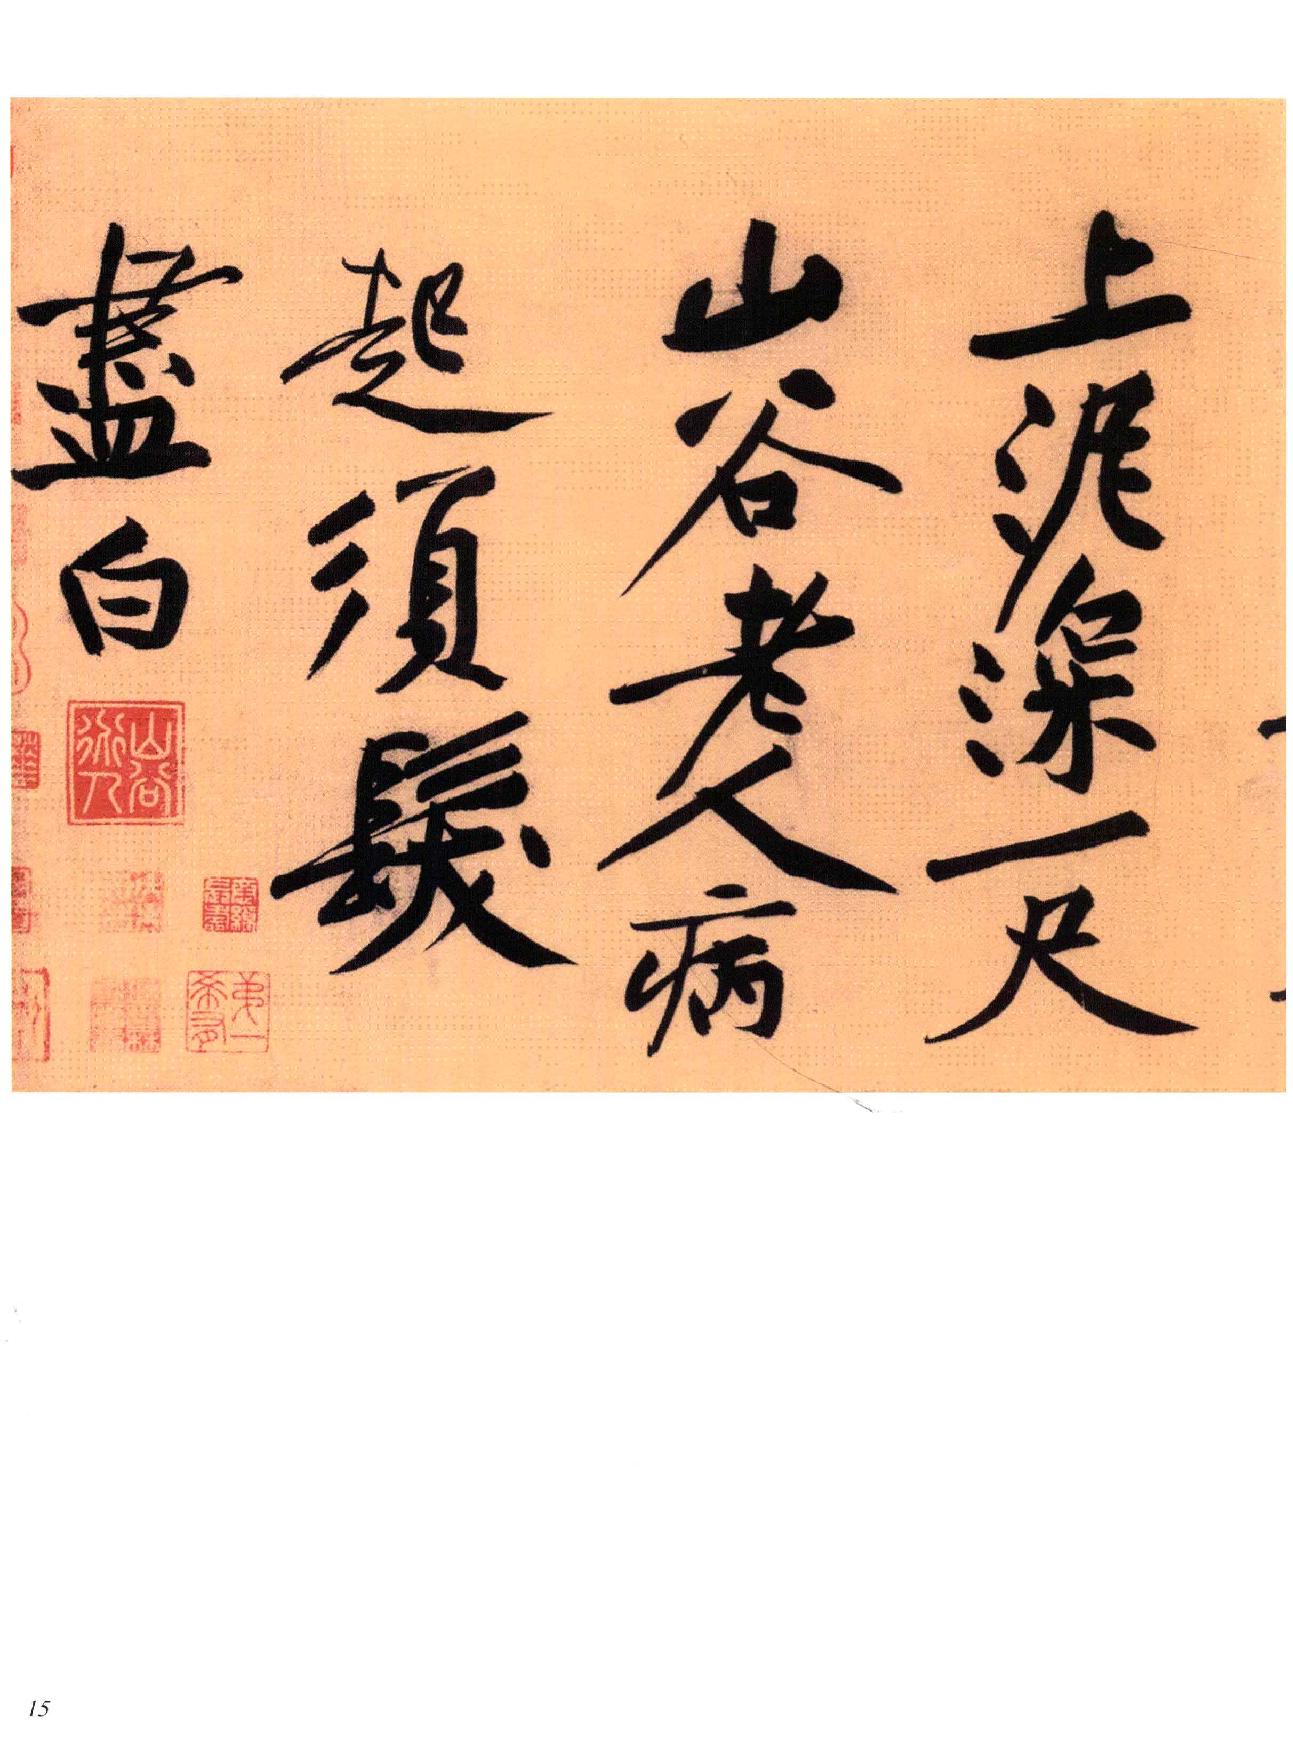 上泥深一尺
山谷老人病
起須髮
盡白
山谷道人
15